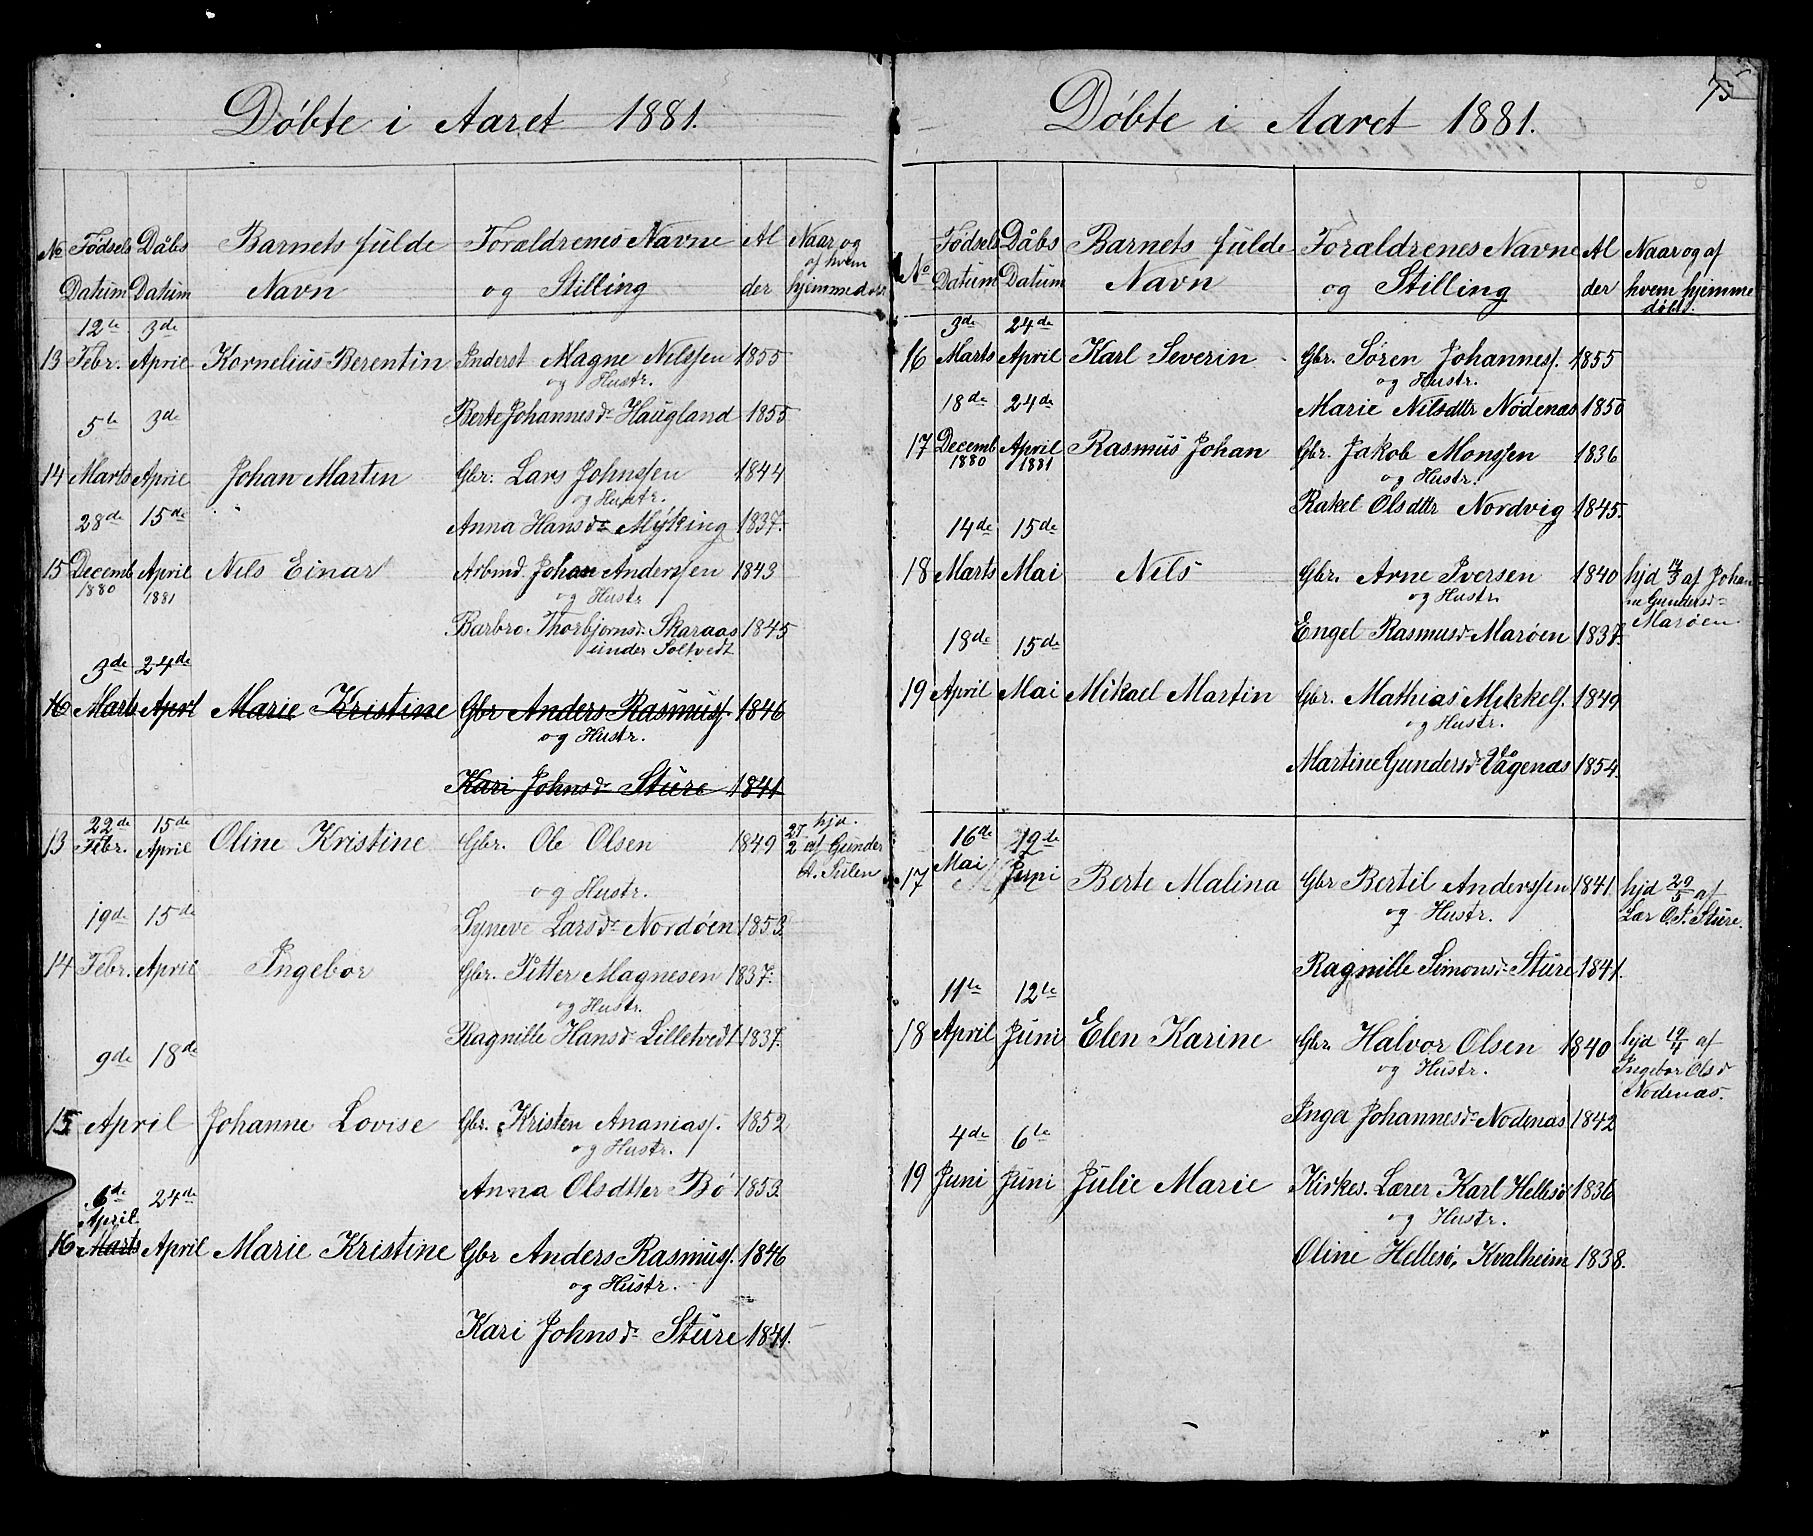 Döbte i Aaret 1881.
No Födsels Datum Dåbs Datum Barnets fulde Navn Foraldrenes Navne og Stilling Al der Naar og af hvem hjemmed
12te 3de
13 Febr. April Kornelius Berentin Inderst Magne Nilssen 1855
og Hustr.
Berte Johannesdr Haugland 1855
5te 3de
14 Marts April Johan Martin Gbr. Lars Johnssen 1844
og Hustr.
Anna Hansdr Myking 1837.
28de 15de
15 Decemb April Nils Einar Arbmd. Johan Anderssen 1843
1880 1881 og Hustr
Barbro Thorbjornsdr Skaraas 1845
under Soltvedt
3de 24de
16 Marts April Marie Kristine Gbr Anders Rasmuss. 1846
og Hustr.
Kari Johnsdr Sture 1841
22de 15de
13 Febr. April Oline Kristine Gbr. Ole Olsen 1849 25/2 hjd. af Gunder A. Sulen
og Hustr.
Syneve Larsdr Nordöen 1853.
19de 15de
14 Febr. April Ingebor Gbr. Pitter Magnesen 1837.
og Hustr.
Ragnille Hansdr Lilletvedt 1837.
9de 18de
15 April Johanne Lovise Gbr. Kristen Ananiass. 1852
og Hustr.
Anna Olsdtter Bö 1853.
6de 24de
April
16 Marts April Marie Kristine Gbr Anders Rasmuss. 1846
og Hustr.
Kari Johnsdr Sture 1841.
73
Döbte i Aaret 1881.
No Födsels Datum Dåbs Datum Barnets fulde Navn Foraldrenes Navne og Stilling Al der Naar og af hvem hjemme döbt.
3de 24de
16 Marts April Karl Severin Gbr. Sören Johanness. 1855
og Hustr.
Marie Nilsdttr Nodenas 1850
18de 24de
17 Decemb April Rasmus Johan Gbr. Jakob Monssen 1836
1880 1881 og Hustr.
Rakel Olsdttr Nordvig 1845.
14de 15de
18 Marts Mai Nils Gbr. Arne Iversen 1840 hjd af Johan
og Hustr ne Gundersdr
Engel Rasmusdr Maröen 1837 Maröen.
18de 15de
19 April Mai Mikael Martin Gbr. Mathias Mikkels. 1849
og Hustr.
Martine Gundersdr Vågenas 1854.
16de 19de
17 Mai Juni Berte Malina Gbr Bertil Anderssen 1841. hjd 20/5 af
og Hustr. Lær O.P. Sture.
Ragnille Simonsdr Sture 1841.
11te 12te
18 April Juni Elen Karine Gbr. Halvor Olsen 1840 hjd 19/4 af
og Hustr. Ingebor Olsd
Inga Johannesdr Nodenas 1842 Nodenas.
4de 6te
19 Juni Juni Julie Marie Kirkes. Lærer Karl Hellesö 1836
og Hustr.
Oline Hellesö, Kvalheim 1838.